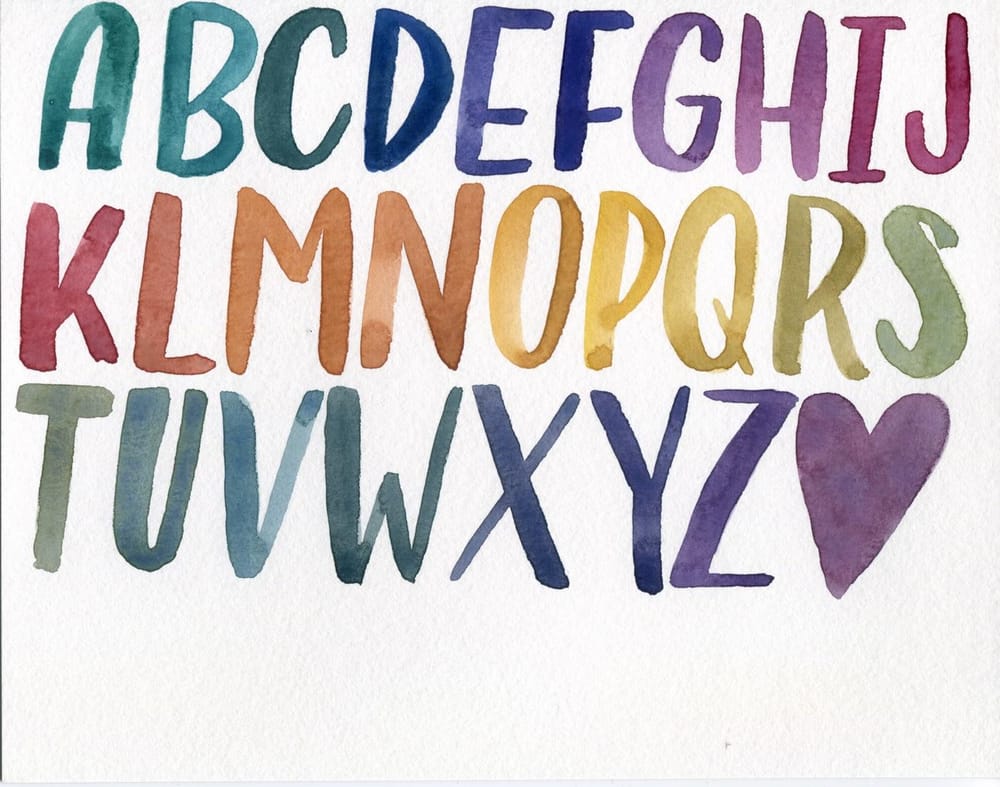 ABCDEFGHIJ
KLMNOPQRS
TUVWXYZ